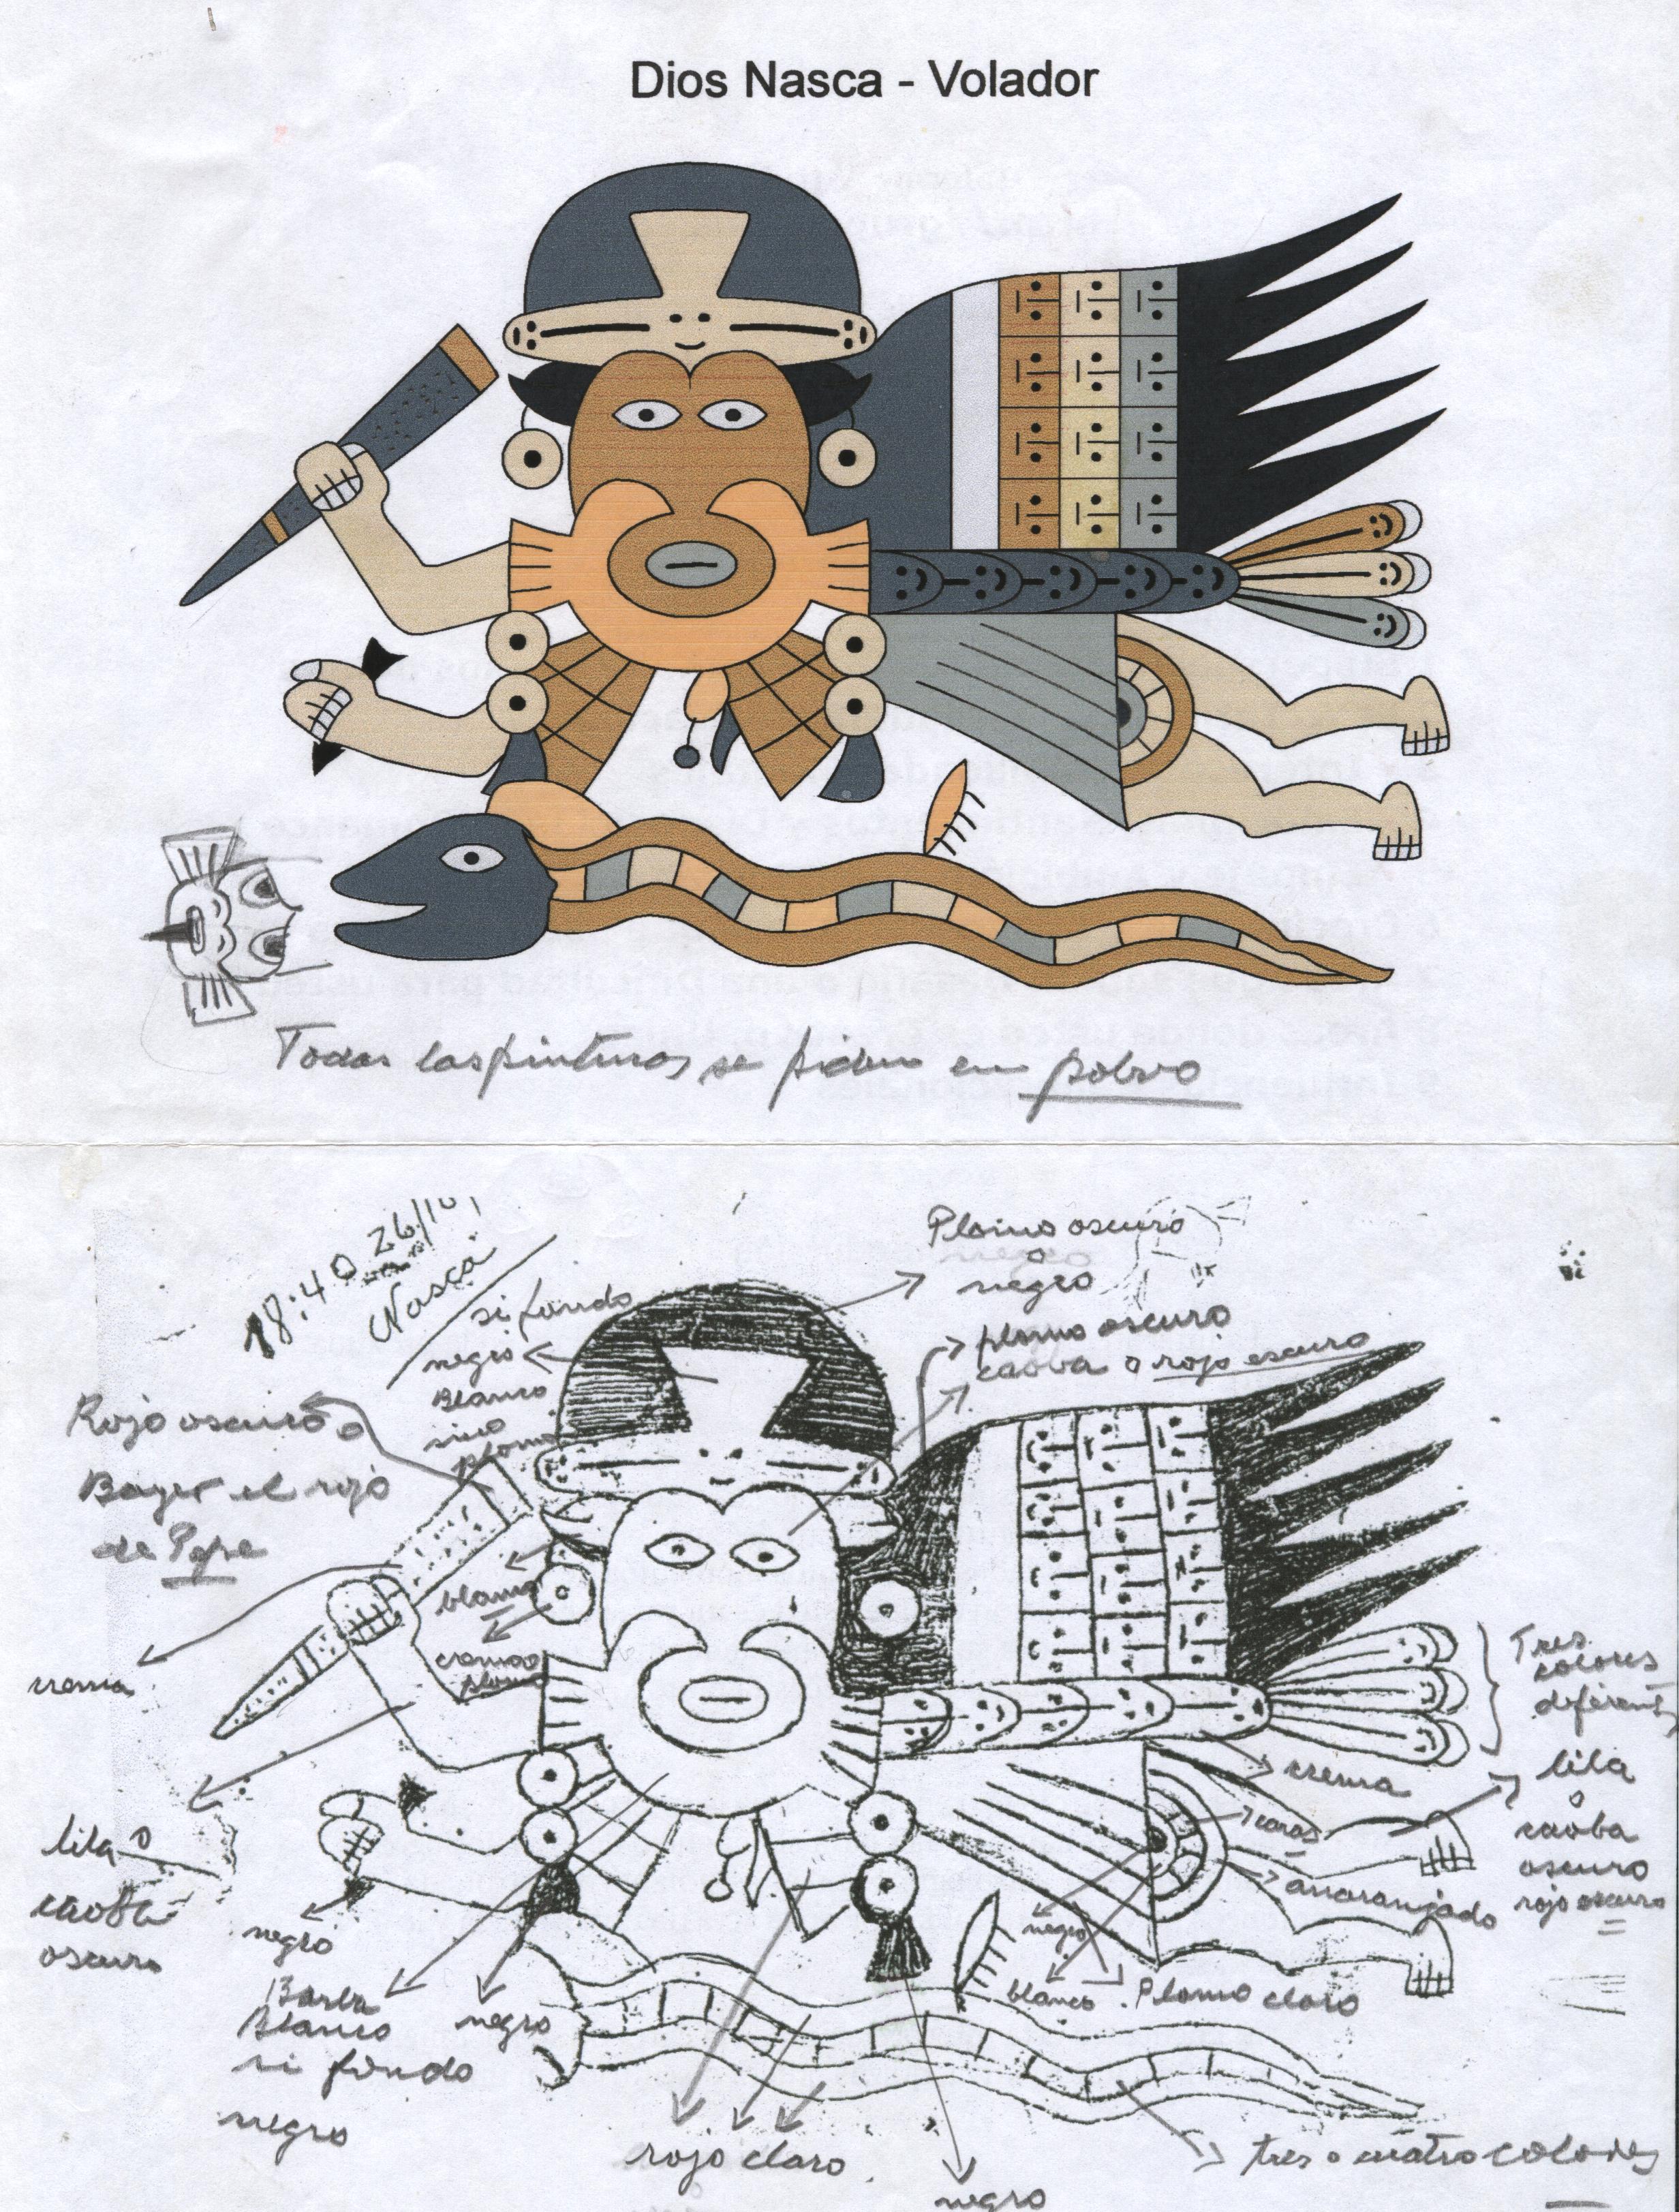 Dios Nasca - Volador
Todas las pinturas se piden en polvo
18:40 26/10
Nasca
Plomo oscuro
o
negro
si fondo
negro
Blanco
sino
plomo
plomo oscuro
caoba o rojo oscuro
Rojo oscuro o
Bayer el rojo
de
blanco
crema o
plomo
crema
Tres
colores
diferent
lila
o
caoba
oscuro
rojo oscuro
crema
anaranjado
lila o
caoba
oscuro
negro
Blanco
si fondo
negro
negro
negro
blanco
Plomo claro
rojo claro
negro
tres o cuatro colores